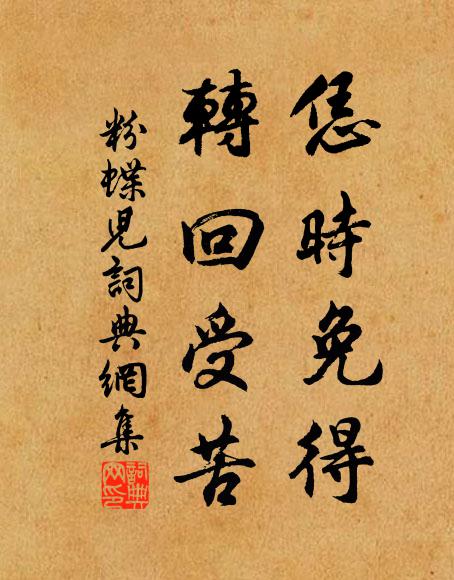 恁時免得
轉回受苦
粉蝶兒詞典網集
詞典網印